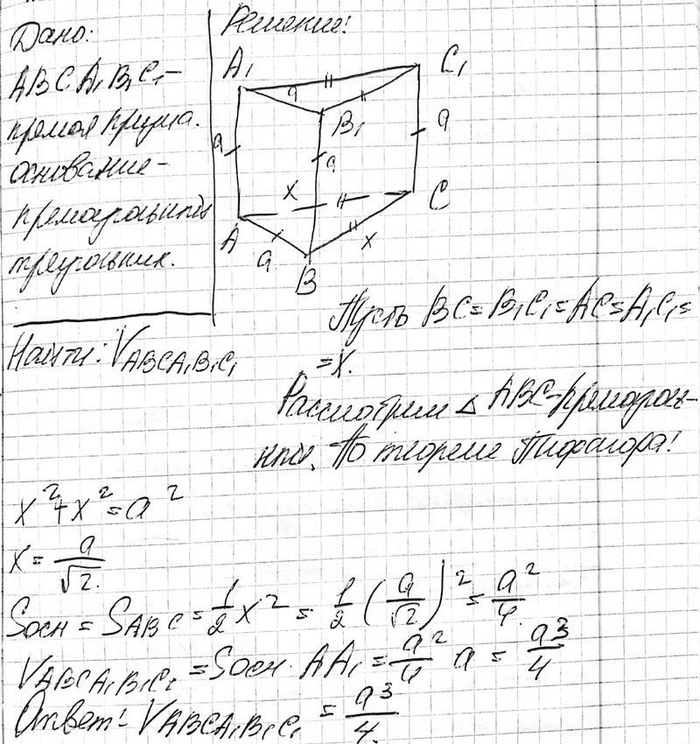 Дано:
ABCA₁B₁C₁ –
прямая призма.
основание –
прямоугольный
треугольник.
Найти: V_{ABCA₁B₁C₁}
Решение:
A₁
C₁
a
B₁
a
a
a
x
A
C
a
x
B
Пусть BC = B₁C₁ = AC = A₁C₁ =
= x.
Рассмотрим △ ABC – прямоуголь-
ный. По теореме Пифагора:
x² + x² = a²
x = a/√2.
Sосн = S_{ABC} = 1/2 x² = 1/2 (a/√2)² = a²/4.
V_{ABCA₁B₁C₁} = Sосн · AA₁ = a²/4 a = a³/4
Ответ: V_{ABCA₁B₁C₁} = a³/4.